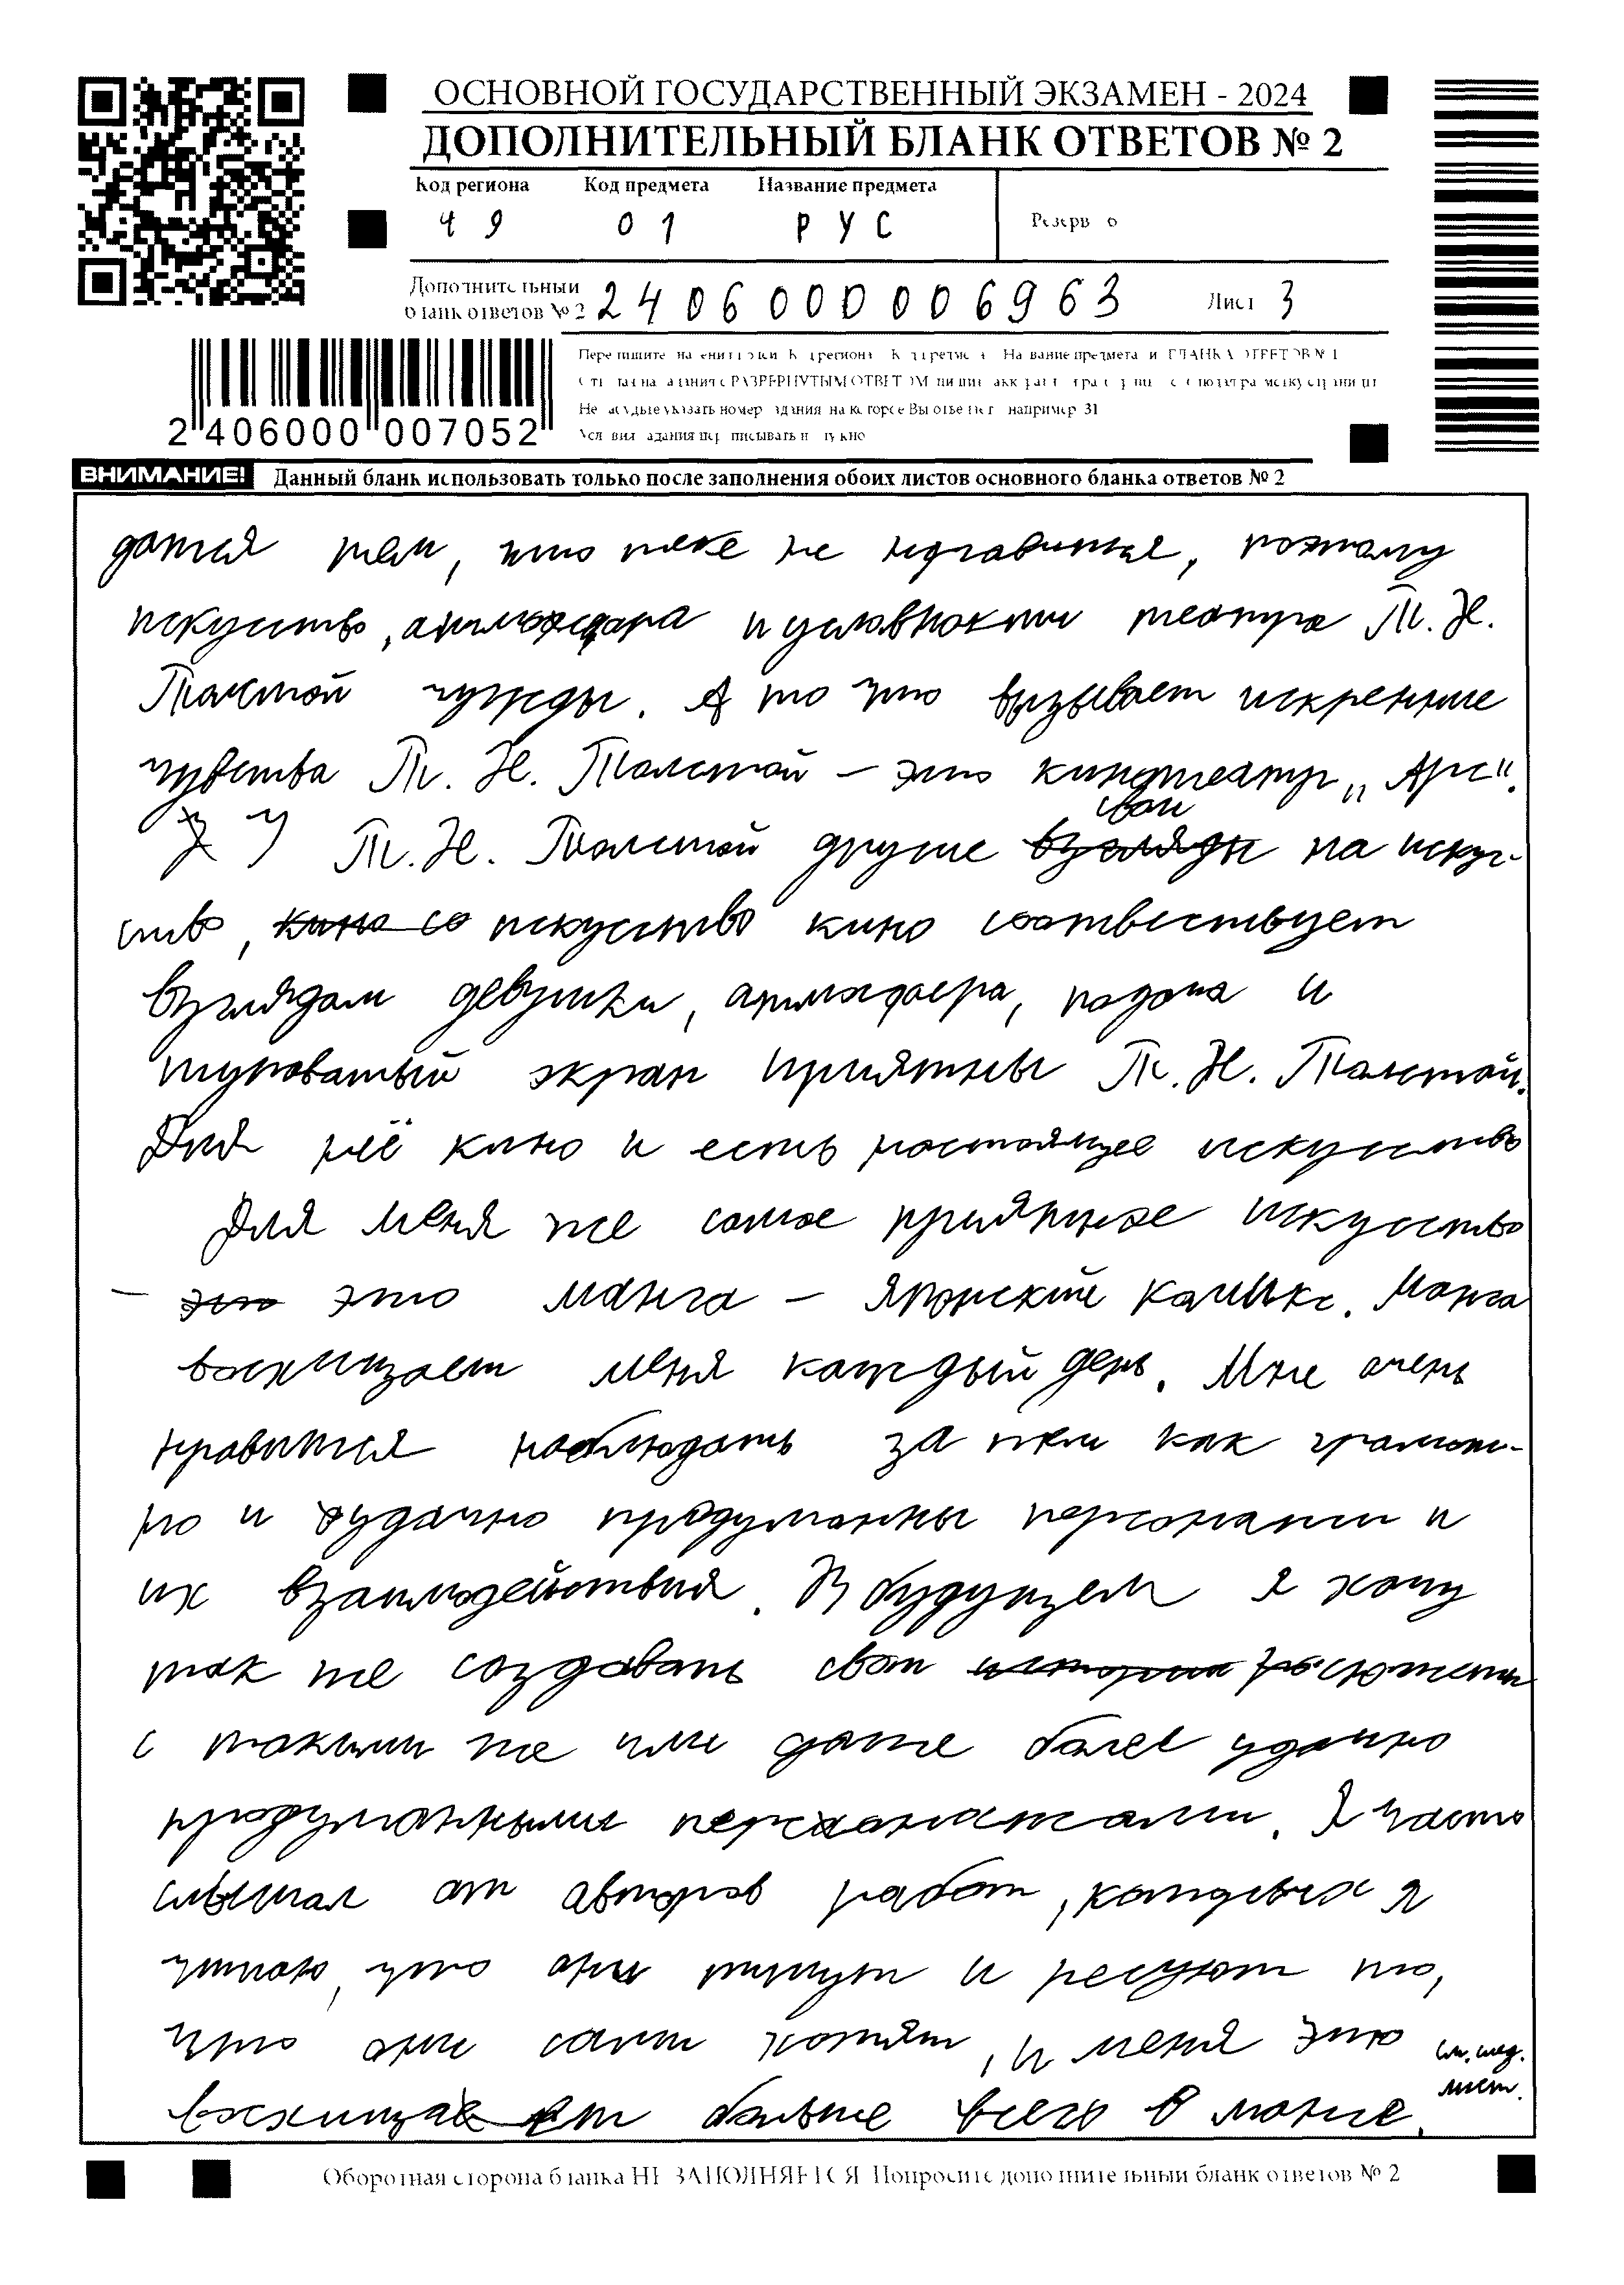 ОСНОВНОЙ ГОСУДАРСТВЕННЫЙ ЭКЗАМЕН - 2024
ДОПОЛНИТЕЛЬНЫЙ БЛАНК ОТВЕТОВ № 2
Код региона Код предмета Название предмета
49 01 РУС Резерв
Дополнительный
бланк ответов № 2 2406000006963 Лист 3
2 406000 007052
ВНИМАНИЕ! Данный бланк использовать только после заполнения обоих листов основного бланка ответов № 2
дается тем, что тебе не нравиться, поэтому
искусство, атмосфера и условности театра Т. Н.
Толстой чужды. А то что вызывает искренние
чувства Т. Н. Толстой – это кинотеатр „Арс".
свои
У Т. Н. Толстой другие взгляды на искус-
ство, кино со искусство кино соответствует
взглядам девушки, атмосфера, подача и
туповатый экран приятны Т. Н. Толстой.
Для неё кино и есть настоящее искусство
Для меня же самое приятное искусство
– это это манга – японский комикс. Манга
восхищает меня каждый день. Мне очень
нравится наблюдать за тем как грамот-
но и удачно продуманны персонажи и
их взаимодействия. В будущем я хочу
так же создавать свои истории сюжеты
с такими же или даже более удачно
продуманными персонажами. Я часто
слышал от авторов работ, которых я
читаю, что они пишут и ресуют то,
что они сами хотят, и меня это
восхищает больше всего в манге.
см. след.
лист.
Оборотная сторона бланка НЕ ЗАПОЛНЯЕТСЯ Попросите дополнительный бланк ответов № 2